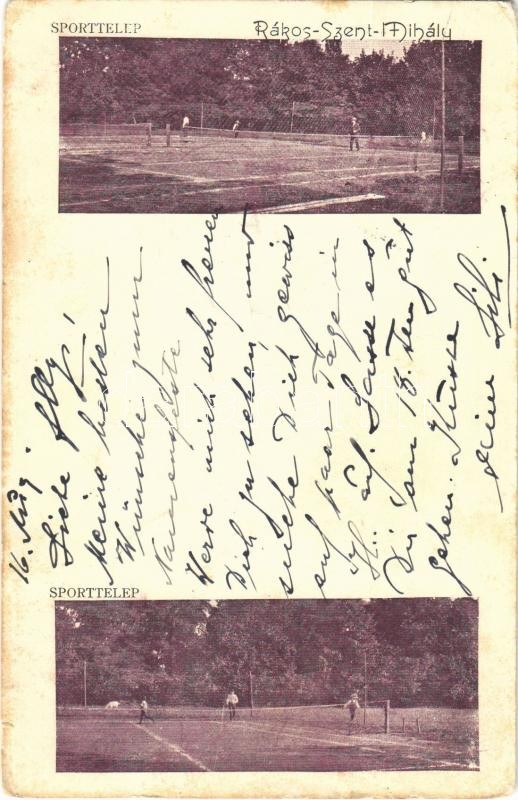 SPORTTELEP
Rákos-Szent-Mihály
16. Aug.
Liebe Elly!
Meine besten
Wünsche zum
Namensfeste
Werde mich sehr freuen
Dich zu sehen, und
suche Dich gewiss
auf paar Tage in
auf. Lasse es
Dir am 18. ten gut
gehen. Küsse
Deine Lili
SPORTTELEP